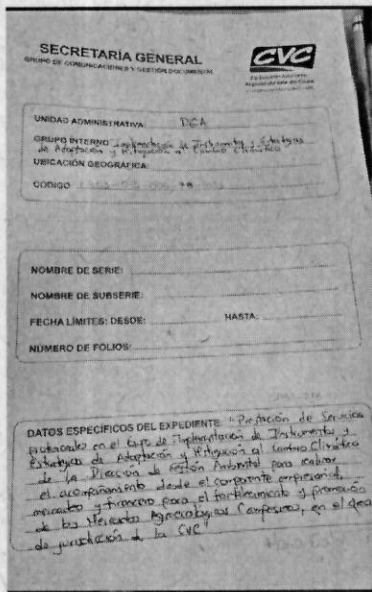 SECRETARÍA GENERAL
GRUPO DE COMUNICACIONES Y GESTIÓN DOCUMENTAL
CVC
Corporación Autónoma
Regional del Valle del Cauca
UNIDAD ADMINISTRATIVA: DGA
GRUPO INTERNO Implementación de Instrumentos y Estrategias
de Adaptación y Mitigación al Cambio Climático
UBICACIÓN GEOGRÁFICA:
CÓDIGO
NOMBRE DE SERIE:
NOMBRE DE SUBSERIE:
FECHA LÍMITES: DESDE: HASTA:
NÚMERO DE FOLIOS:
DATOS ESPECÍFICOS DEL EXPEDIENTE "Prestación de Servicios
profesionales en el Grupo de Implementación de Instrumentos y
Estrategias de Adaptación y Mitigación al Cambio Climático
de la Dirección de Gestión Ambiental para realizar
el acompañamiento desde el componente empresarial,
mercadeo y financiero para el fortalecimiento y promoción
de los Mercados Agroecológicos Campesinos, en el área
de jurisdicción de la CVC"